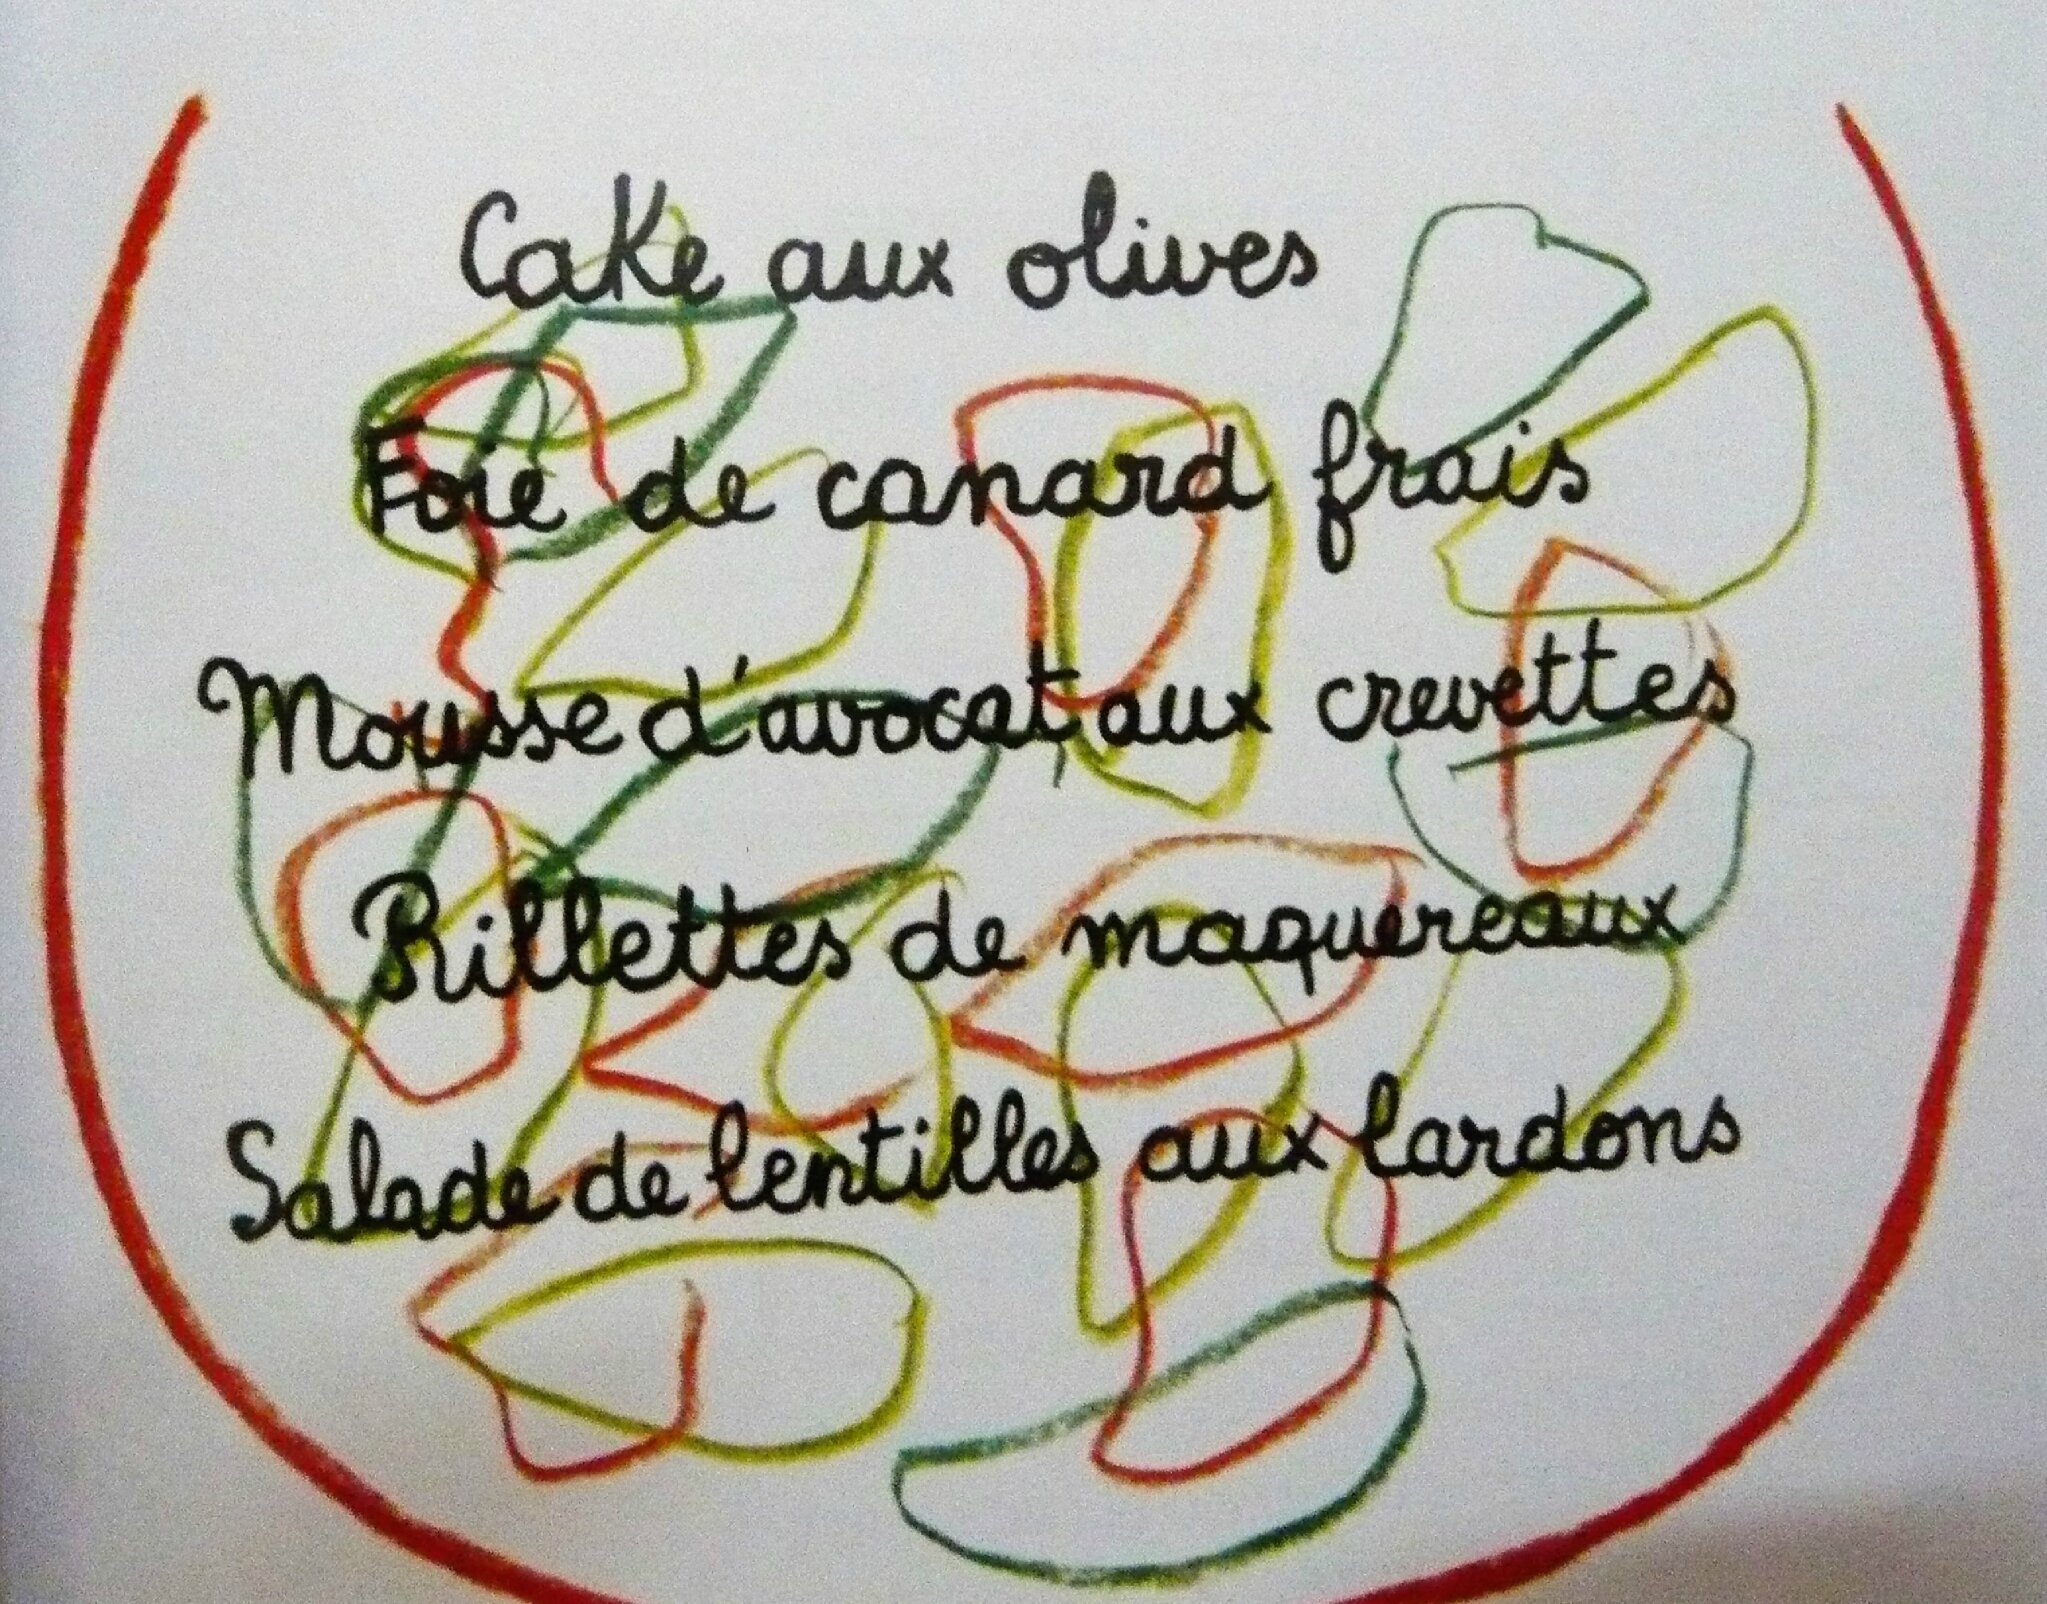 Cake aux olives
Foie de canard frais
Mousse d'avocat aux crevettes
Rillettes de maquereaux
Salade de lentilles aux lardons